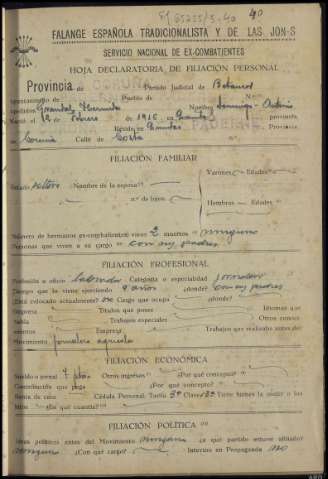 40
FALANGE ESPAÑOLA TRADICIONALISTA Y DE LAS JON-S
SERVICIO NACIONAL DE EX-COMBATIENTES
HOJA DECLARATORIA DE FILIACIÓN PERSONAL
Provincia de CORUÑA Partido Judicial de Betanzos
Ayuntamiento de PADERNE Pueblo de
Apellidos Nombre Domingo Antonio
Nació el 12 de Febrero de 1916 en provincia
Coruña Reside en Provincia
de Coruña Calle de Costa
FILIACIÓN FAMILIAR
Estado soltero Nombre de la esposa Varones Edades
n.º de hijos Hembras Edades
Número de hermanos ex-combatientes: vivos 2 muertos ninguno
Personas que viven a su cargo con sus padres
FILIACIÓN PROFESIONAL
Profesión u oficio labrador Categoría o especialidad jornalero
Tiempo que la viene ejerciendo años ¿dónde? con sus padres
¿Está colocado actualmente? no Cargo que ocupa ¿dónde?
Empresa Títulos que posee Idiomas que
habla Trabajos especiales Otros conoci-
mientos Empresa Trabajos realizados antes del
Movimiento jornalero agrícola
FILIACIÓN ECONÓMICA
Sueldo o jornal Otros ingresos ¿Por qué concepto?
Contribución que paga ¿Por qué concepto?
Renta de casa Cédula Personal Tarifa 3ª Clase 13ª Tiene bienes la mujer o los
hijos ¿En qué cuantía?
FILIACIÓN POLÍTICA
Ideas políticas antes del Movimiento ninguna ¿a qué partido estuvo afiliado
ninguno ¿Con qué cargo? Intervino en Propaganda no